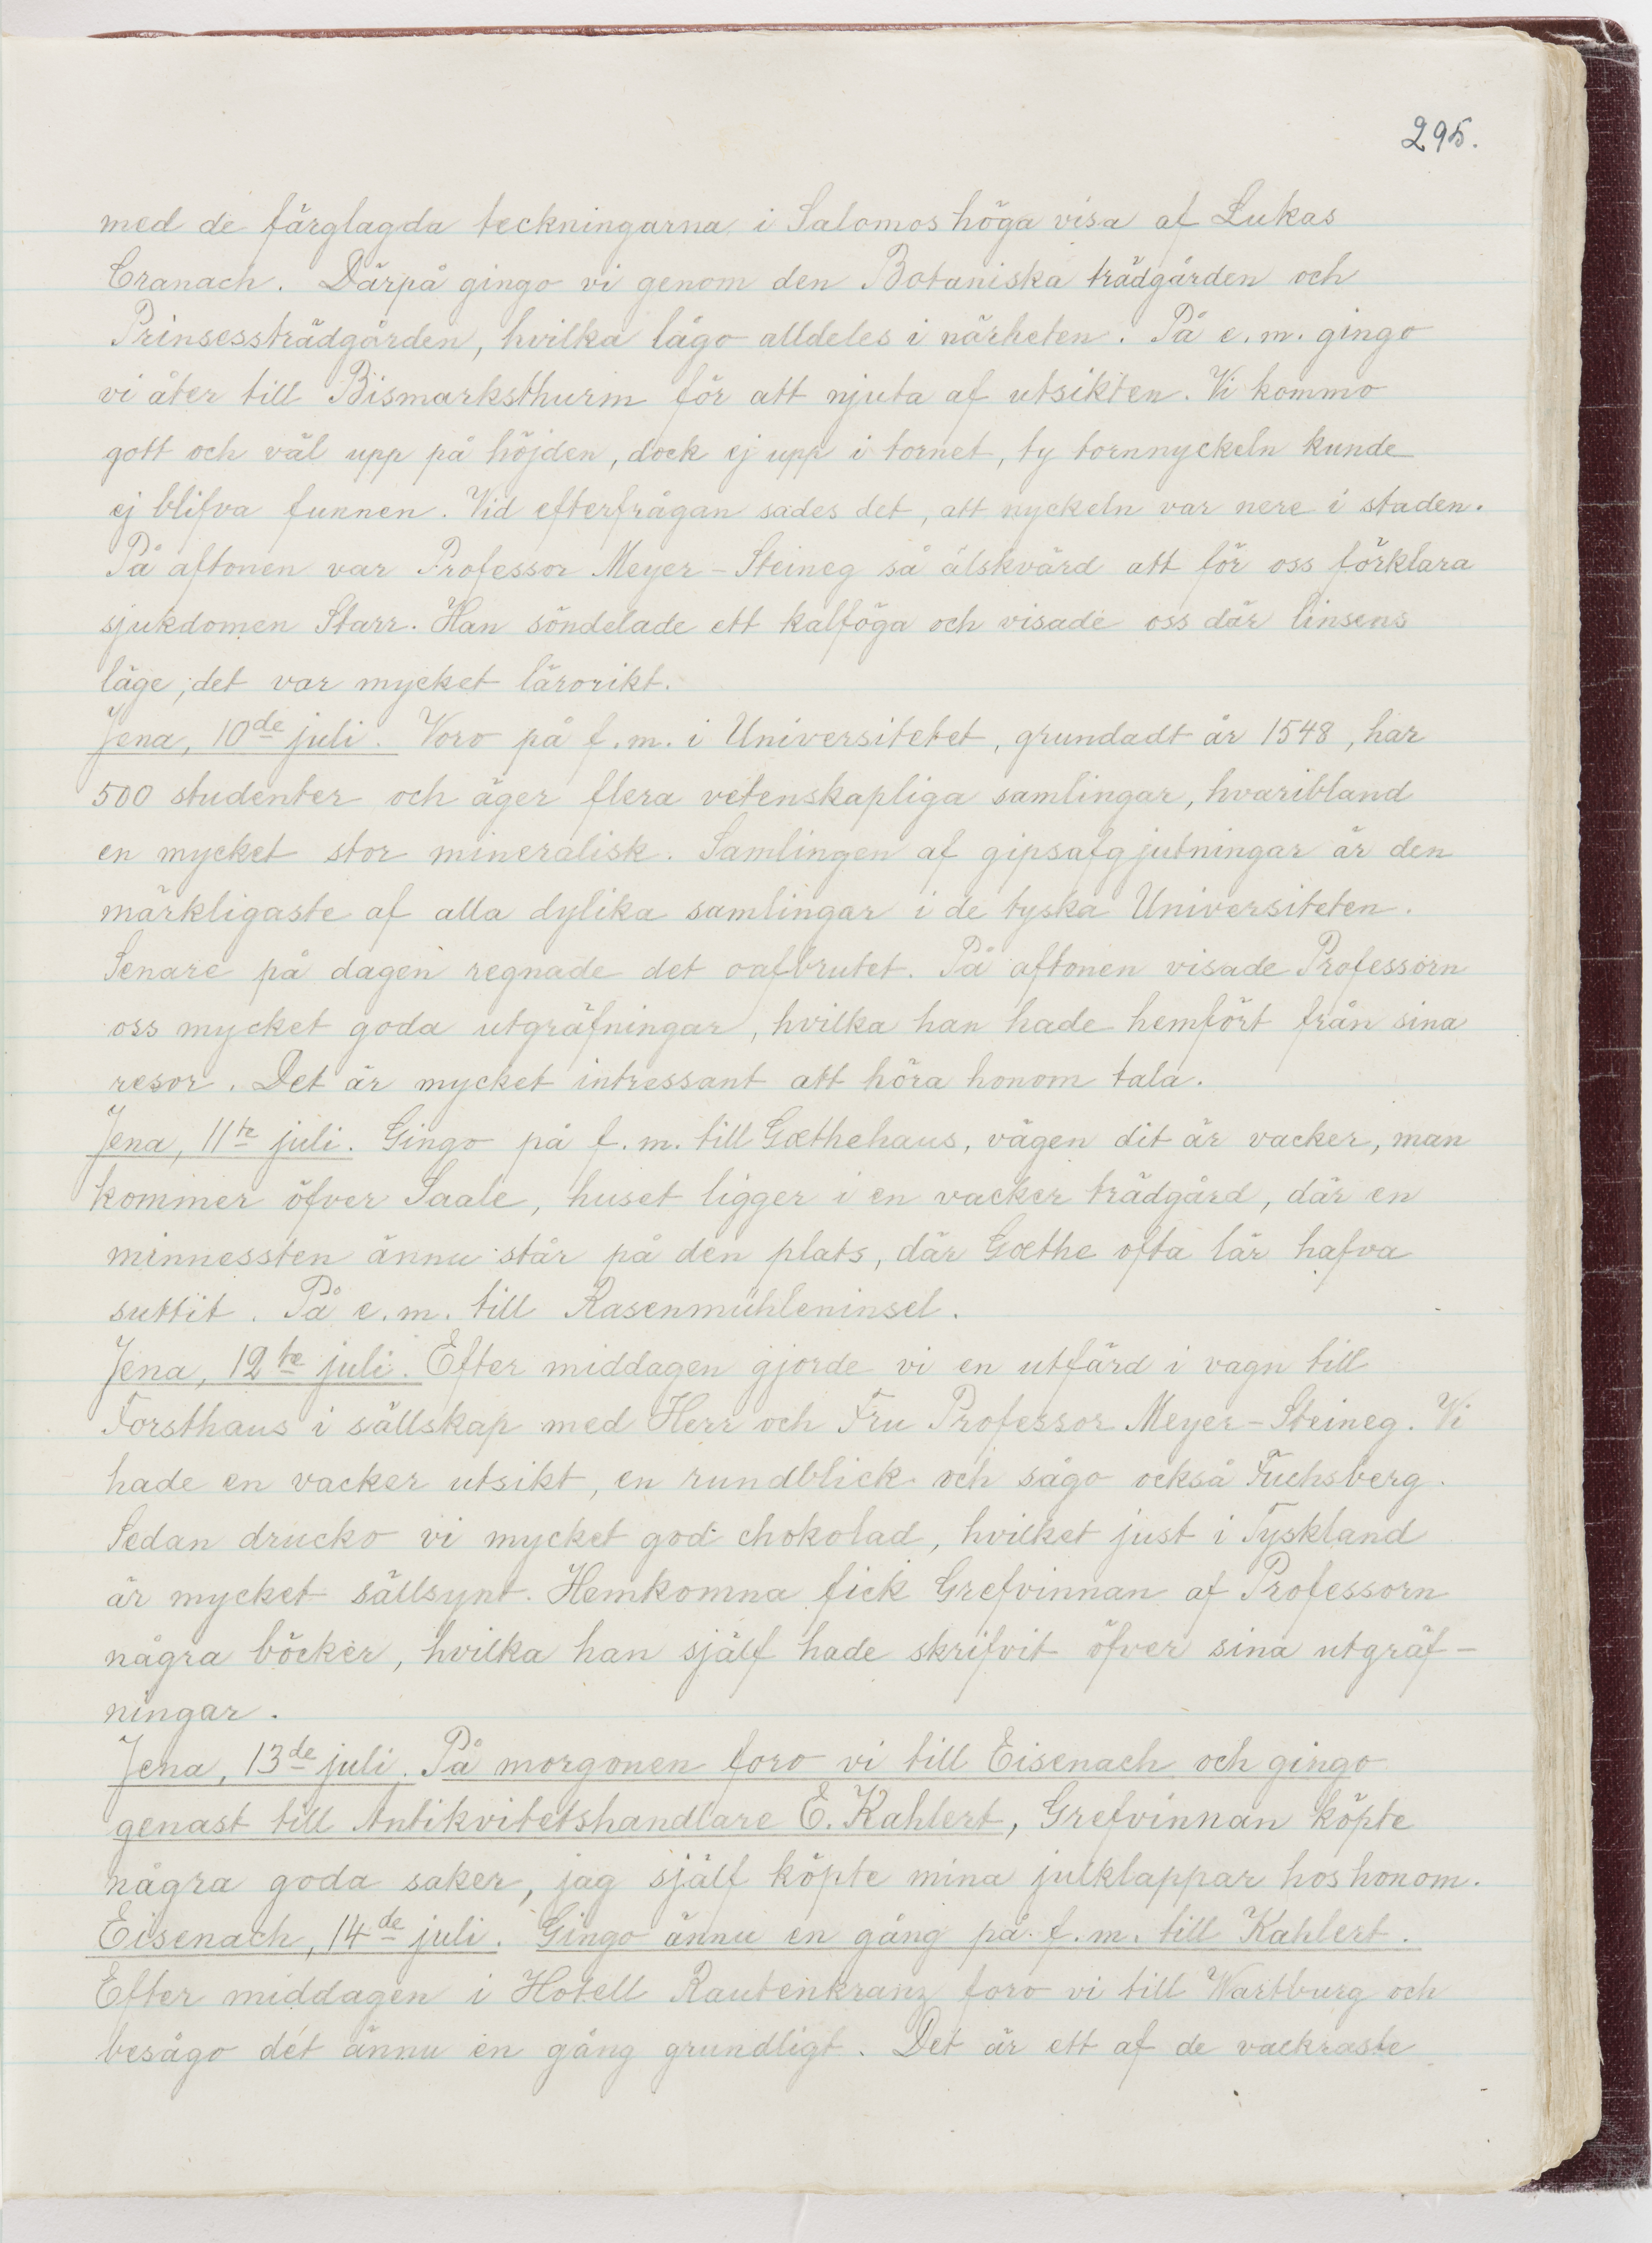 295.
med de färglagda teckningarna i Salomos höga visa af Lukas
Cranach. Därpå gingo vi genom den Botaniska trädgården och
Prinsessträdgården, hvilka lågo alldeles i närheten. På e.m. gingo
vi åter till Bismarksthurm för att njuta af utsikten. Vi kommo
gott och väl upp på höjden, dock ej upp i tornet, ty tornnyckeln kunde
ej blifva funnen. Vid efterfrågan sades det, att nyckeln var nere i staden.
På aftonen var Professor Meyer-Steineg så älskvärd att för oss förklara
sjukdomen Starr. Han söndelade ett kalföga och visade oss där linsens
läge; det var mycket lärorikt.
Jena, 10de juli. Voro på f.m. i Universitetet, grundadt år 1548, har
500 studenter och äger flera vetenskapliga samlingar, hvaribland
en mycket stor mineralisk. Samlingen af gipsafgjutningar är den
märkligaste af alla dylika samlingar i de tyska Universiteten.
Senare på dagen regnade det oafbrutet. På aftonen visade Professorn
oss mycket goda utgräfningar, hvilka han hade hemfört från sina
resor. Det är mycket intressant att höra honom tala.
Jena, 11te juli. Gingo på f.m. till Gœthehaus, vägen dit är vacker, man
kommer öfver Saale, huset ligger i en vacker trädgård, där en
minnessten ännu står på den plats, där Gœthe ofta lär hafva
suttit. På e.m. till Rasenmühleninsel.
Jena, 12te juli. Efter middagen gjorde vi en utfärd i vagn till
Forsthaus i sällskap med Herr och Fru Professor Meyer-Steineg. Vi
hade en vacker utsikt, en rundblick och sågo också Fuchsberg.
Sedan drucko vi mycket god chokolad, hvilket just i Tyskland
är mycket sällsynt. Hemkomna fick Grefvinnan af Professorn
några böcker, hvilka han själf hade skrifvit öfver sina utgräf-
ningar.
Jena, 13de juli. På morgonen foro vi till Eisenach och gingo
genast till Antikvitetshandlare E. Kahlert, Grefvinnan köpte
några goda saker, jag själf köpte mina julklappar hos honom.
Eisenach, 14de juli. Gingo ännu en gång på f.m. till Kahlert.
Efter middagen i Hotell Rautenkranz foro vi till Wartburg och
besågo det ännu en gång grundligt. Det är ett af de vackraste